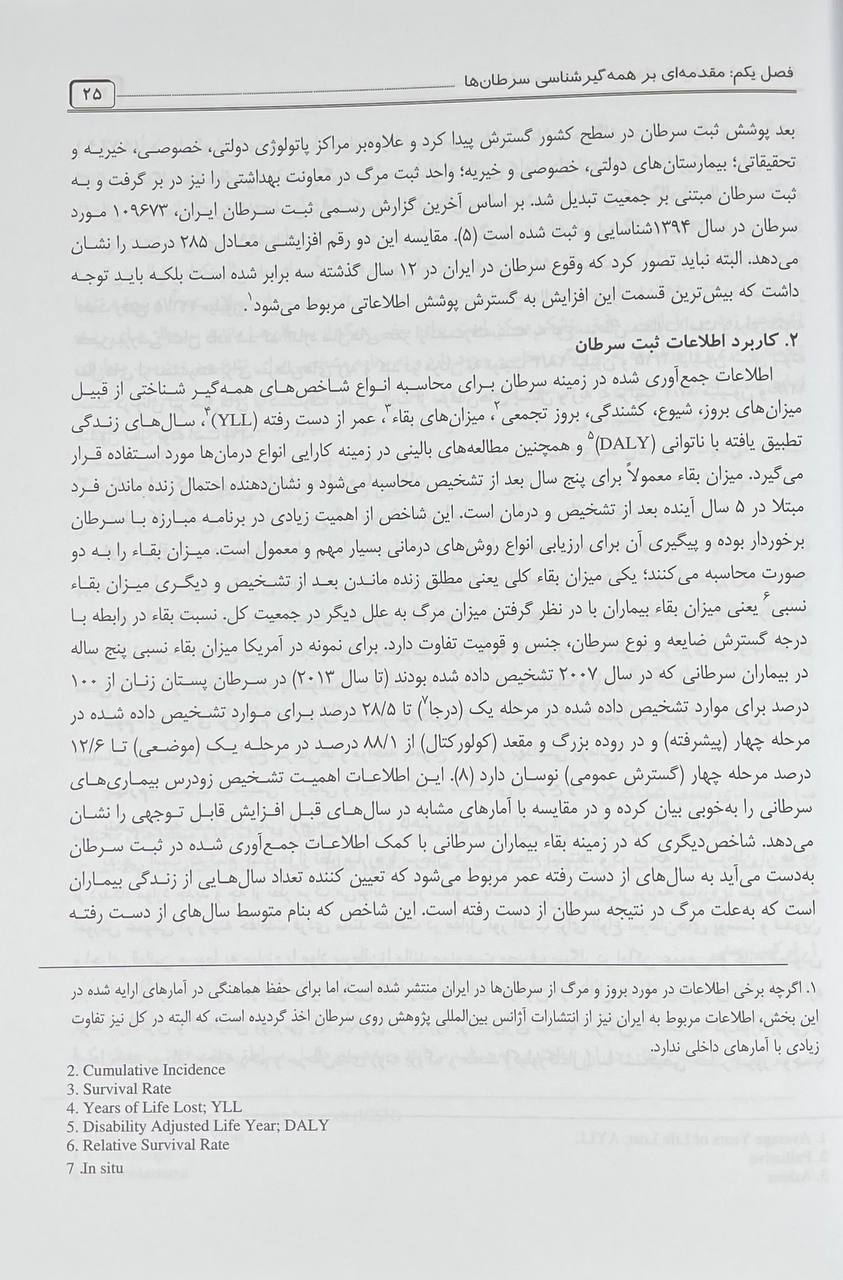 فصل یکم: مقدمه‌ای بر همه‌گیرشناسی سرطان‌ها
۲۵
بعد پوشش ثبت سرطان در سطح کشور گسترش پیدا کرد و علاوه‌بر مراکز پاتولوژی دولتی، خصوصی، خیریه و
تحقیقاتی؛ بیمارستان‌های دولتی، خصوصی و خیریه؛ واحد ثبت مرگ در معاونت بهداشتی را نیز در بر گرفت و به
ثبت سرطان مبتنی بر جمعیت تبدیل شد. بر اساس آخرین گزارش رسمی ثبت سرطان ایران، ۱۰۹۶۷۳ مورد
سرطان در سال ۱۳۹۴شناسایی و ثبت شده است (۵). مقایسه این دو رقم افزایشی معادل ۲۸۵ درصد را نشان
می‌دهد. البته نباید تصور کرد که وقوع سرطان در ایران در ۱۲ سال گذشته سه برابر شده است بلکه باید توجه
داشت که بیش‌ترین قسمت این افزایش به گسترش پوشش اطلاعاتی مربوط می‌شود۱.
۲. کاربرد اطلاعات ثبت سرطان
اطلاعات جمع‌آوری شده در زمینه سرطان برای محاسبه انواع شاخص‌های همه‌گیر شناختی از قبیل
میزان‌های بروز، شیوع، کشندگی، بروز تجمعی۲، میزان‌های بقاء۳، عمر از دست رفته (YLL)۴، سال‌های زندگی
تطبیق یافته با ناتوانی (DALY)۵ و همچنین مطالعه‌های بالینی در زمینه کارایی انواع درمان‌ها مورد استفاده قرار
می‌گیرد. میزان بقاء معمولاً برای پنج سال بعد از تشخیص محاسبه می‌شود و نشان‌دهنده احتمال زنده ماندن فرد
مبتلا در ۵ سال آینده بعد از تشخیص و درمان است. این شاخص از اهمیت زیادی در برنامه مبارزه با سرطان
برخوردار بوده و پیگیری آن برای ارزیابی انواع روش‌های درمانی بسیار مهم و معمول است. میزان بقاء را به دو
صورت محاسبه می‌کنند؛ یکی میزان بقاء کلی یعنی مطلق زنده ماندن بعد از تشخیص و دیگری میزان بقاء
نسبی۶ یعنی میزان بقاء بیماران با در نظر گرفتن میزان مرگ به علل دیگر در جمعیت کل. نسبت بقاء در رابطه با
درجه گسترش ضایعه و نوع سرطان، جنس و قومیت تفاوت دارد. برای نمونه در آمریکا میزان بقاء نسبی پنج ساله
در بیماران سرطانی که در سال ۲۰۰۷ تشخیص داده شده بودند (تا سال ۲۰۱۳) در سرطان پستان زنان از ۱۰۰
درصد برای موارد تشخیص داده شده در مرحله یک (درجا۷) تا ۲۸/۵ درصد برای موارد تشخیص داده شده در
مرحله چهار (پیشرفته) و در روده بزرگ و مقعد (کولورکتال) از ۸۸/۱ درصد در مرحله یک (موضعی) تا ۱۲/۶
درصد مرحله چهار (گسترش عمومی) نوسان دارد (۸). این اطلاعات اهمیت تشخیص زودرس بیماری‌های
سرطانی را به‌خوبی بیان کرده و در مقایسه با آمارهای مشابه در سال‌های قبل افزایش قابل توجهی را نشان
می‌دهد. شاخص‌دیگری که در زمینه بقاء بیماران سرطانی با کمک اطلاعات جمع‌آوری شده در ثبت سرطان
به‌دست می‌آید به سال‌های از دست رفته عمر مربوط می‌شود که تعیین کننده تعداد سال‌هایی از زندگی بیماران
است که به‌علت مرگ در نتیجه سرطان از دست رفته است. این شاخص که بنام متوسط سال‌های از دست رفته
۱. اگرچه برخی اطلاعات در مورد بروز و مرگ از سرطان‌ها در ایران منتشر شده است، اما برای حفظ هماهنگی در آمارهای ارایه شده در
این بخش، اطلاعات مربوط به ایران نیز از انتشارات آژانس بین‌المللی پژوهش روی سرطان اخذ گردیده است، که البته در کل نیز تفاوت
زیادی با آمارهای داخلی ندارد.
2. Cumulative Incidence
3. Survival Rate
4. Years of Life Lost; YLL
5. Disability Adjusted Life Year; DALY
6. Relative Survival Rate
7 .In situ